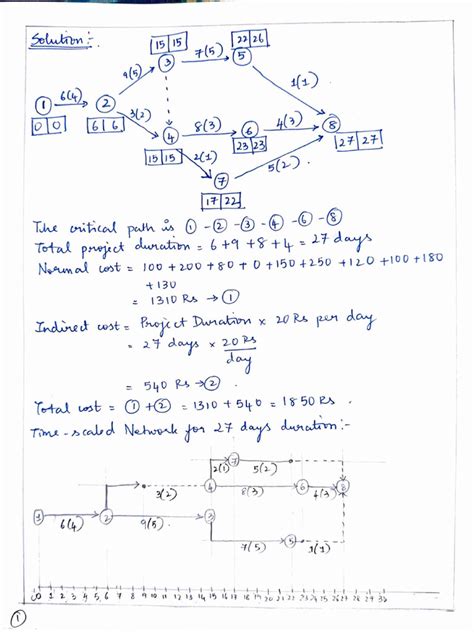 Solution:-
15 15
7(5)
22 26
3
5
9(5)
1(1)
6(4)
1
2
3(2)
8(3)
4(3)
0 0
6 6
4
6
8
15 15
2(1)
23 23
27 27
7
5(2)
17 22
The critical path is 1 - 2 - 3 - 4 - 6 - 8
Total project duration = 6+9+8+4 = 27 days
Normal cost = 100 + 200 + 80 + 0 + 150 + 250 + 120 + 100 + 180
+ 130
= 1310 Rs → 1
Indirect cost = Project Duration × 20 Rs per day
= 27 days × 20 Rs
day
= 540 Rs → 2
Total cost = 1 + 2 = 1310 + 540 = 1850 Rs.
Time-scaled Network for 27 days duration:-
2(1) 7 5(2)
3(2) 4 8(3) 6 4(3) 8
1 6(4) 2 9(5) 3
7(5) 5 1(1)
0 1 2 3 4 5 6 7 8 9 10 11 12 13 14 15 16 17 18 19 20 21 22 23 24 25 26 27 28 29 30
1